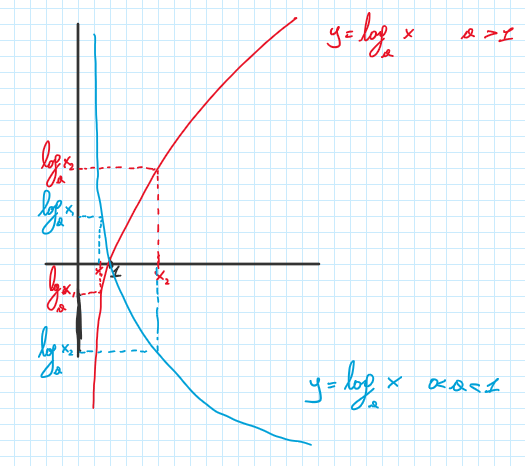 y = logₐ x    a > 1
logₐ x₂
logₐ x₁
x₁ 1 x₂
logₐ x₁
logₐ x₂
y = logₐ x    0 < a < 1